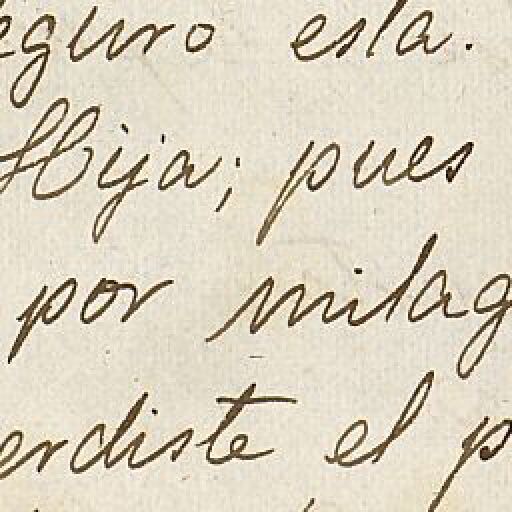 eguro esta.
Hija; pues
por milag
erdiste el p